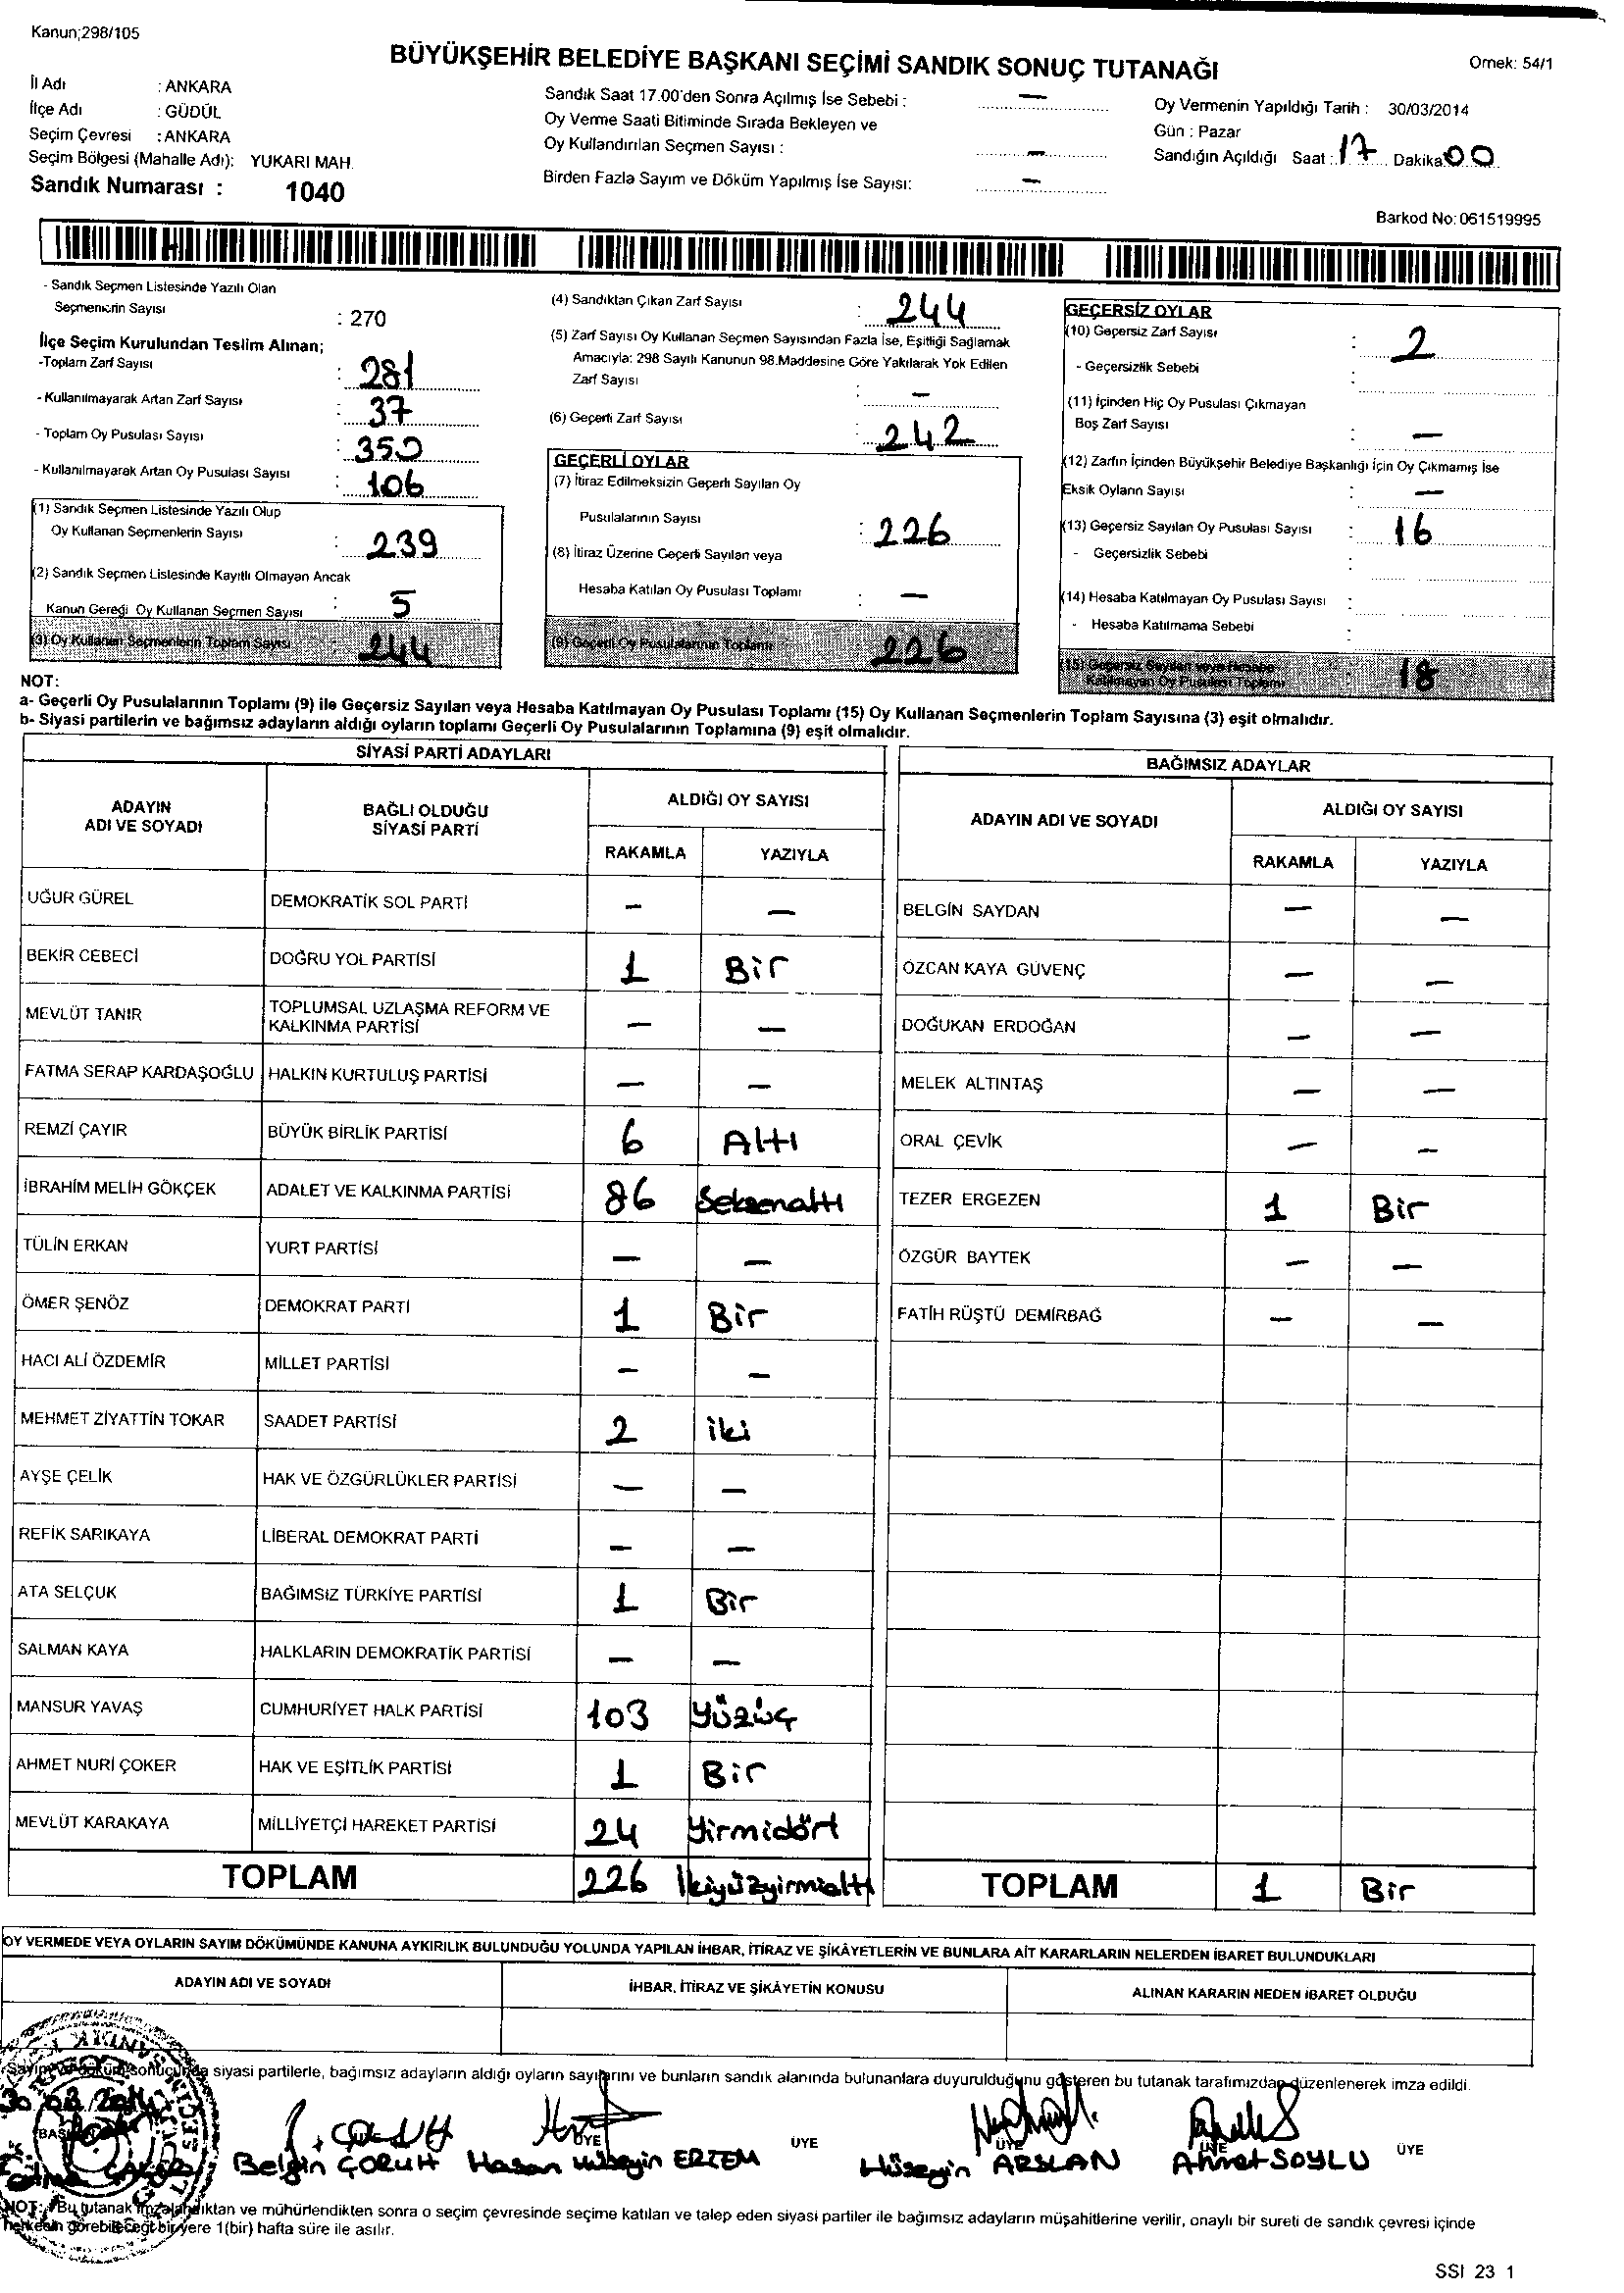 Kanun;298/105
BÜYÜKŞEHİR BELEDİYE BAŞKANI SEÇİMİ SANDIK SONUÇ TUTANAĞI
Örnek: 54/1
İl Adı : ANKARA
İlçe Adı : GÜDÜL
Seçim Çevresi : ANKARA
Seçim Bölgesi (Mahalle Adı): YUKARI MAH.
Sandık Numarası : 1040
Sandık Saat 17.00'den Sonra Açılmış İse Sebebi : —
Oy Verme Saati Bitiminde Sırada Bekleyen ve
Oy Kullandırılan Seçmen Sayısı : —
Birden Fazla Sayım ve Döküm Yapılmış İse Sayısı: —
Oy Vermenin Yapıldığı Tarih : 30/03/2014
Gün : Pazar
Sandığın Açıldığı Saat : 17 Dakika 00
Barkod No: 061519995
- Sandık Seçmen Listesinde Yazılı Olan
Seçmenlerin Sayısı : 270
İlçe Seçim Kurulundan Teslim Alınan;
-Toplam Zarf Sayısı : 281
- Kullanılmayarak Artan Zarf Sayısı : 37
- Toplam Oy Pusulası Sayısı : 350
- Kullanılmayarak Artan Oy Pusulası Sayısı : 106
(1) Sandık Seçmen Listesinde Yazılı Olup
Oy Kullanan Seçmenlerin Sayısı : 239
(2) Sandık Seçmen Listesinde Kayıtlı Olmayan Ancak
Kanun Gereği Oy Kullanan Seçmen Sayısı : 5
(3) Oy Kullanan Seçmenlerin Toplam Sayısı : 244
(4) Sandıktan Çıkan Zarf Sayısı : 244
(5) Zarf Sayısı Oy Kullanan Seçmen Sayısından Fazla İse, Eşitliği Sağlamak
Amacıyla: 298 Sayılı Kanunun 98.Maddesine Göre Yakılarak Yok Edilen
Zarf Sayısı : —
(6) Geçerli Zarf Sayısı : 242
GEÇERLİ OYLAR
(7) İtiraz Edilmeksizin Geçerli Sayılan Oy
Pusulalarının Sayısı : 226
(8) İtiraz Üzerine Geçerli Sayılan veya
Hesaba Katılan Oy Pusulası Toplamı : —
(9) Geçerli Oy Pusulalarının Toplamı : 226
GEÇERSİZ OYLAR
(10) Geçersiz Zarf Sayısı : 2
- Geçersizlik Sebebi :
(11) İçinden Hiç Oy Pusulası Çıkmayan
Boş Zarf Sayısı : —
(12) Zarfın İçinden Büyükşehir Belediye Başkanlığı İçin Oy Çıkmamış İse
Eksik Oyların Sayısı : —
(13) Geçersiz Sayılan Oy Pusulası Sayısı : 16
- Geçersizlik Sebebi :
(14) Hesaba Katılmayan Oy Pusulası Sayısı :
- Hesaba Katılmama Sebebi :
(15) Geçersiz Sayılan veya Hesaba
Katılmayan Oy Pusulası Toplamı : 18
NOT:
a- Geçerli Oy Pusulalarının Toplamı (9) ile Geçersiz Sayılan veya Hesaba Katılmayan Oy Pusulası Toplamı (15) Oy Kullanan Seçmenlerin Toplam Sayısına (3) eşit olmalıdır.
b- Siyasi partilerin ve bağımsız adayların aldığı oyların toplamı Geçerli Oy Pusulalarının Toplamına (9) eşit olmalıdır.
SİYASİ PARTİ ADAYLARI
ADAYIN ADI VE SOYADI BAĞLI OLDUĞU SİYASİ PARTİ ALDIĞI OY SAYISI
RAKAMLA YAZIYLA
UĞUR GÜREL DEMOKRATİK SOL PARTİ — —
BEKİR CEBECİ DOĞRU YOL PARTİSİ 1 Bir
MEVLÜT TANIR TOPLUMSAL UZLAŞMA REFORM VE KALKINMA PARTİSİ — —
FATMA SERAP KARDAŞOĞLU HALKIN KURTULUŞ PARTİSİ — —
REMZİ ÇAYIR BÜYÜK BİRLİK PARTİSİ 6 Altı
İBRAHİM MELİH GÖKÇEK ADALET VE KALKINMA PARTİSİ 86 Seksenaltı
TÜLİN ERKAN YURT PARTİSİ — —
ÖMER ŞENÖZ DEMOKRAT PARTİ 1 Bir
HACI ALİ ÖZDEMİR MİLLET PARTİSİ — —
MEHMET ZİYATTİN TOKAR SAADET PARTİSİ 2 iki
AYŞE ÇELİK HAK VE ÖZGÜRLÜKLER PARTİSİ — —
REFİK SARIKAYA LİBERAL DEMOKRAT PARTİ — —
ATA SELÇUK BAĞIMSIZ TÜRKİYE PARTİSİ 1 Bir
SALMAN KAYA HALKLARIN DEMOKRATİK PARTİSİ — —
MANSUR YAVAŞ CUMHURİYET HALK PARTİSİ 103 Yüzüç
AHMET NURİ ÇOKER HAK VE EŞİTLİK PARTİSİ 1 Bir
MEVLÜT KARAKAYA MİLLİYETÇİ HAREKET PARTİSİ 24 Yirmidört
TOPLAM 226 İkiyüzyirmialtı
BAĞIMSIZ ADAYLAR
ADAYIN ADI VE SOYADI ALDIĞI OY SAYISI
RAKAMLA YAZIYLA
BELGİN SAYDAN — —
ÖZCAN KAYA GÜVENÇ — —
DOĞUKAN ERDOĞAN — —
MELEK ALTINTAŞ — —
ORAL ÇEVİK — —
TEZER ERGEZEN 1 Bir
ÖZGÜR BAYTEK — —
FATİH RÜŞTÜ DEMİRBAĞ — —
TOPLAM 1 Bir
OY VERMEDE VEYA OYLARIN SAYIM DÖKÜMÜNDE KANUNA AYKIRILIK BULUNDUĞU YOLUNDA YAPILAN İHBAR, İTİRAZ VE ŞİKÂYETLERİN VE BUNLARA AİT KARARLARIN NELERDEN İBARET BULUNDUKLARI
ADAYIN ADI VE SOYADI İHBAR, İTİRAZ VE ŞİKÂYETİN KONUSU ALINAN KARARIN NEDEN İBARET OLDUĞU
Sayım ve döküm sonucunda siyasi partilerle, bağımsız adayların aldığı oyların sayılarını ve bunların sandık alanında bulunanlara duyurulduğunu gösteren bu tutanak tarafımızdan düzenlenerek imza edildi.
30.03.2014
BAŞKAN ÜYE ÜYE ÜYE ÜYE ÜYE
Belgin ÇORUH Hasan Hüseyin ERTEM Hüseyin ARSLAN Ahmet SOYLU
NOT: Bu tutanak imzalandıktan ve mühürlendikten sonra o seçim çevresinde seçime katılan ve talep eden siyasi partiler ile bağımsız adayların müşahitlerine verilir, onaylı bir sureti de sandık çevresi içinde
herkesin görebileceği bir yere 1(bir) hafta süre ile asılır.
SSI 23 1